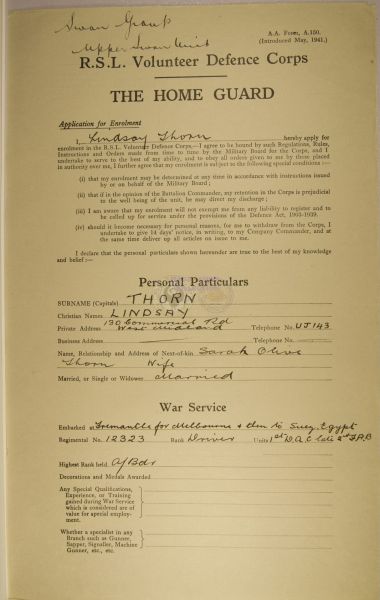 Swan Group
Upper Swan Unit
A.A. Form, A.150.
(Introduced May, 1941.)
R.S.L. Volunteer Defence Corps
THE HOME GUARD
Application for Enrolment
I, Lindsay Thorn hereby apply for
enrolment in the R.S.L. Volunteer Defence Corps,—I agree to be bound by such Regulations, Rules,
Instructions and Orders made from time to time by the Military Board for the Corps, and I
undertake to serve to the best of my ability, and to obey all orders given to me by those placed
in authority over me, I further agree that my enrolment is subject to the following special conditions :—
(i) that my enrolment may be determined at any time in accordance with instructions issued
by or on behalf of the Military Board ;
(ii) that if in the opinion of the Battalion Commander, my retention in the Corps is prejudicial
to the well being of the unit, he may direct my discharge ;
(iii) I am aware that my enrolment will not exempt me from any liability to register and to
be called up for service under the provisions of the Defence Act, 1903-1939.
(iv) should it become necessary for personal reasons, for me to withdraw from the Corps, I
undertake to give 14 days' notice, in writing, to my Company Commander, and at
the same time deliver up all articles on issue to me.
I declare that the personal particulars shown hereunder are true to the best of my knowledge
and belief :—
Personal Particulars
SURNAME (Capitals) THORN
Christian Names LINDSAY
130 Commercial Rd
Private Address West Midland Telephone No. UJ143
Business Address Telephone No. —
Name, Relationship and Address of Next-of-kin Sarah Olive
Thorn Wife
Married, or Single or Widower Married
War Service
Embarked at Fremantle for Melbourne & then to Suez, Egypt
Regimental No. 12323 Rank Driver Units 1st D.A.C. late 2nd F.A.B
Highest Rank held A/Bdr
Decorations and Medals Awarded
Any Special Qualifications,
Experience, or Training
gained during War Service
which is considered are of
value for special employ-
ment.
Whether a specialist in any
Branch such as Gunner,
Sapper, Signaller, Machine
Gunner, etc., etc.